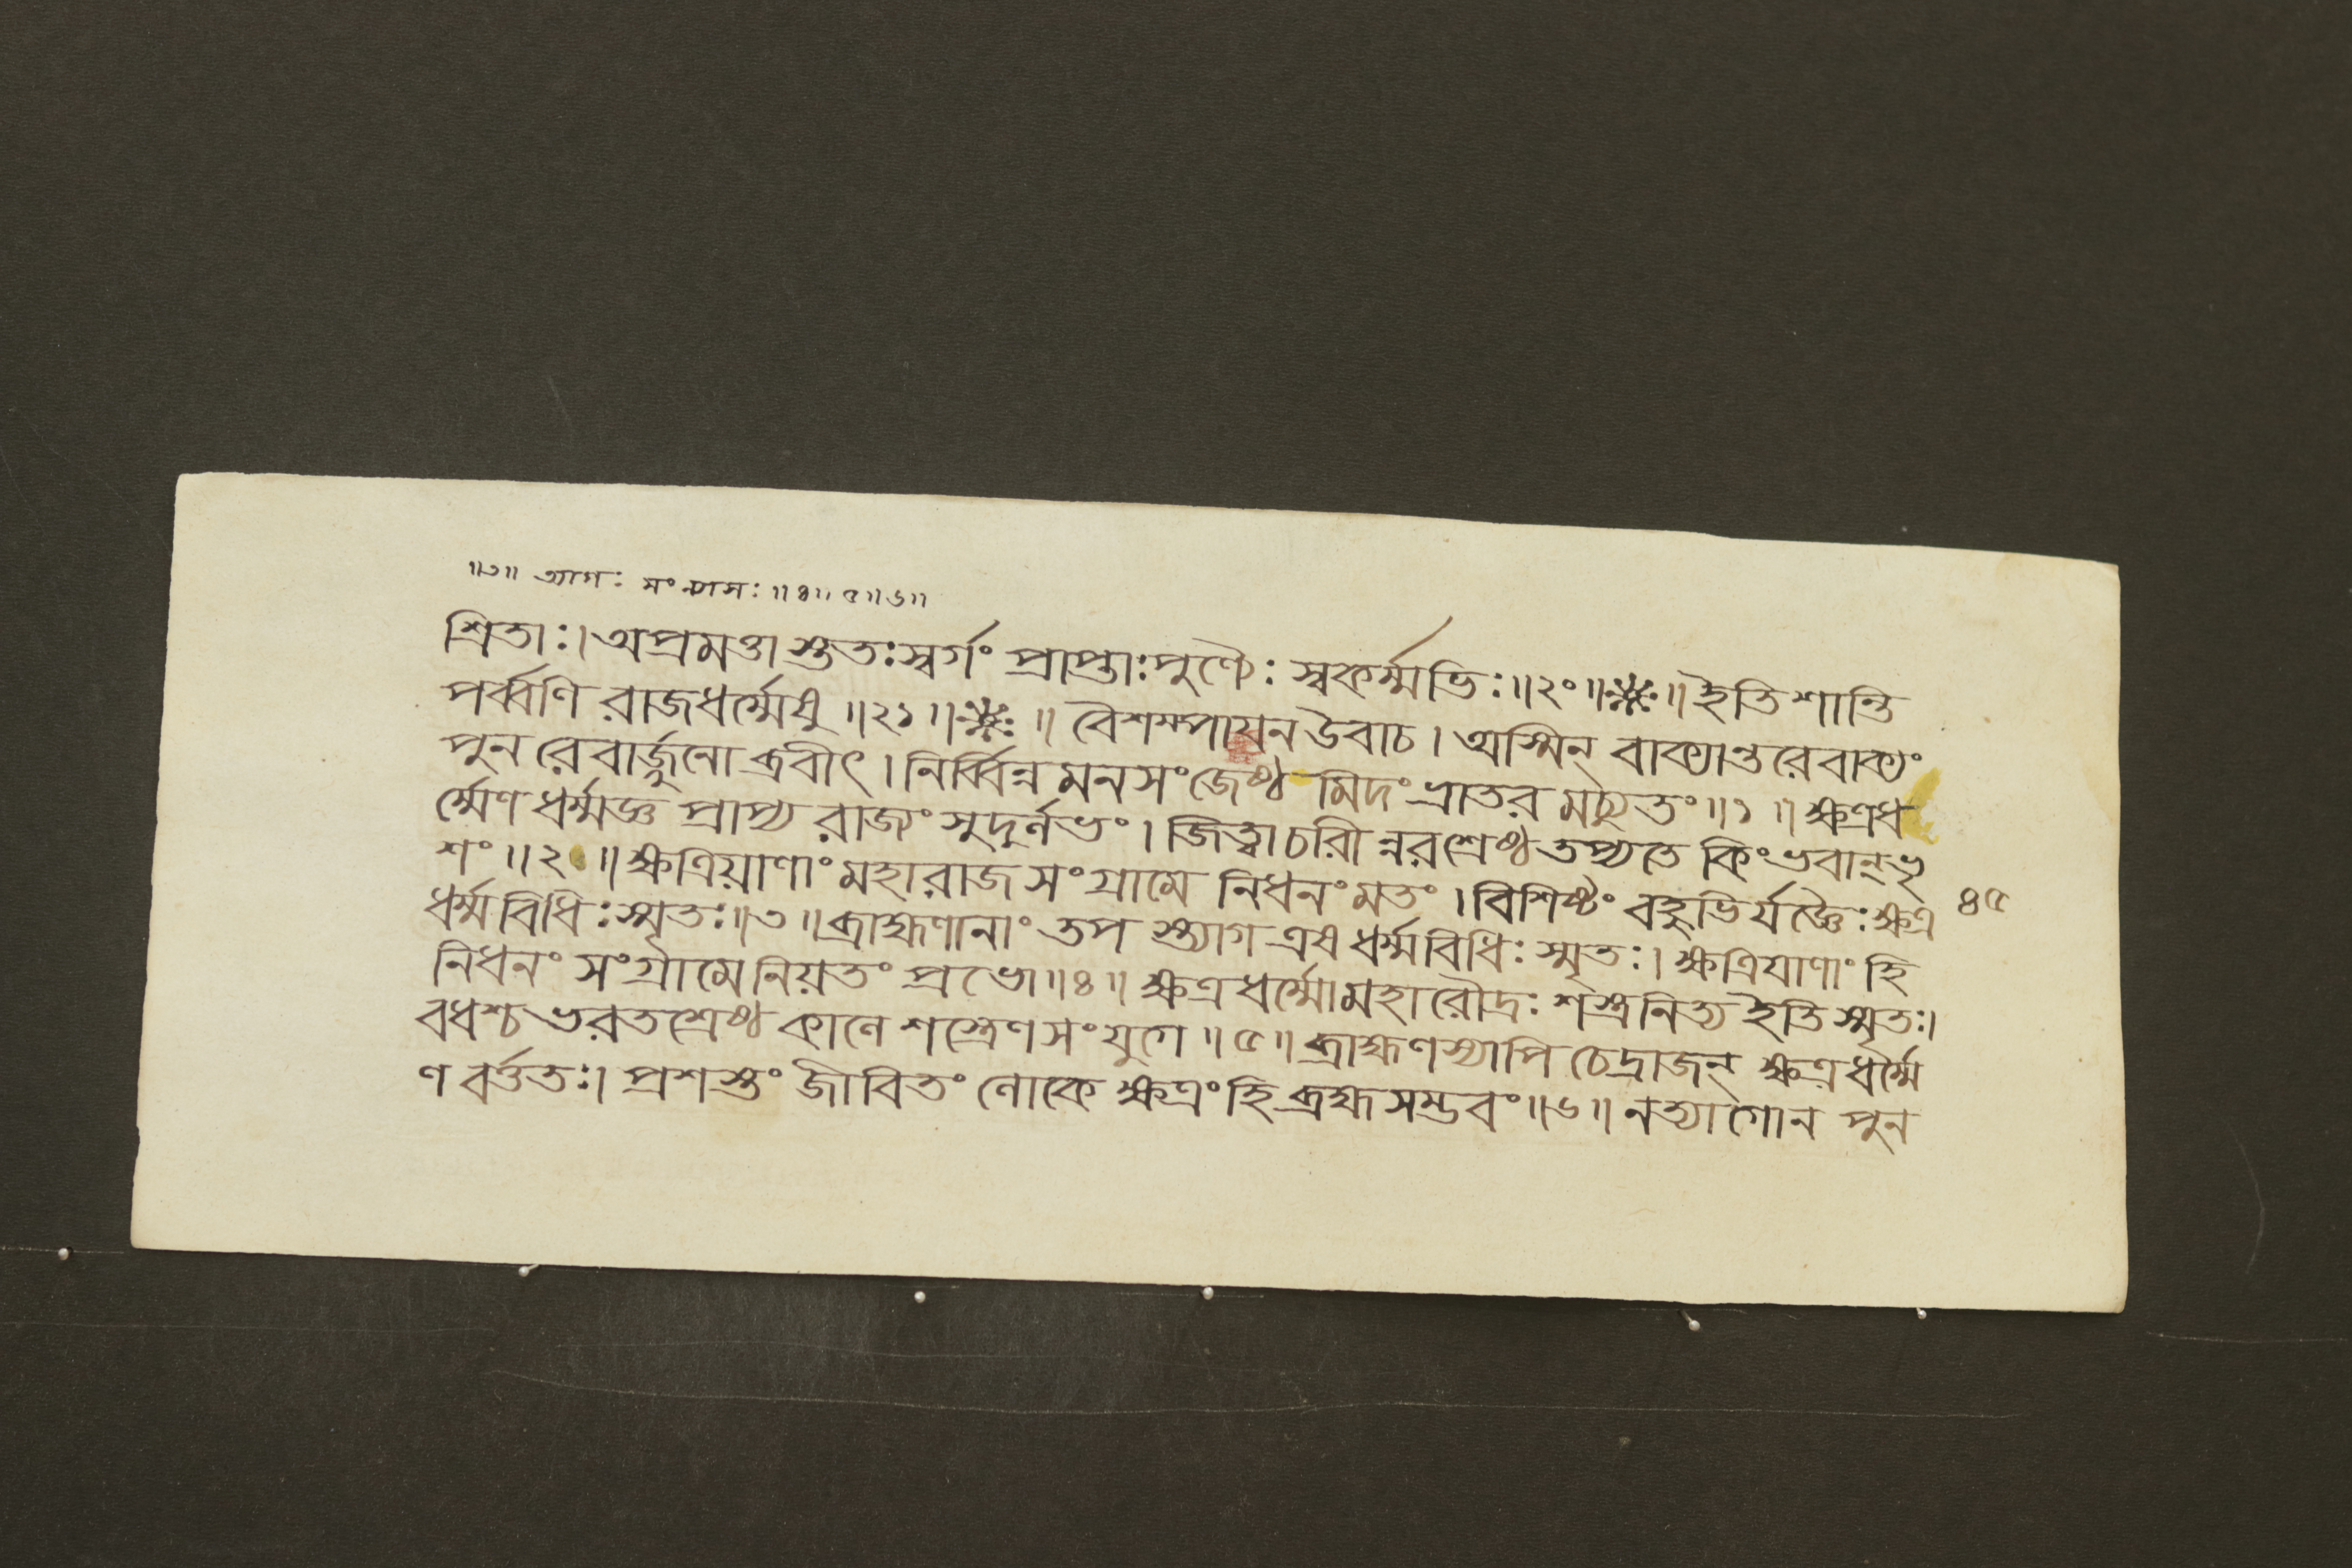 ॥৩॥ ত্যাগঃ সংন্যাসঃ ॥৪॥ ৫॥৬॥
শ্রিতাঃ। অপ্রমত্তাস্ততঃস্বর্গং প্রাপ্তাঃপুণ্যৈঃ স্বকর্ম্মভিঃ॥২০॥※॥ ইতি শান্তি
পর্ব্বণি রাজধর্ম্মেষু ॥২১॥※॥ বৈশম্পায়ন উবাচ। অস্মিন্ বাক্যান্তরেবাক্যং
পুনরেবার্জ্জুনো ব্রবীৎ। নির্ব্বিন্নমনসংজেষ্ঠমিদংভ্রাতরমচ্যুতং॥১॥ ক্ষত্রধ
র্ম্মেণ ধর্ম্মজ্ঞ প্রাপ্য রাজ্যং সুদুর্লভং। জিত্বাচরীন্নরশ্রেষ্ঠতপ্যতে কিংভবান্‌ভৃ
শং॥২॥ ক্ষত্রিয়াণাংমহারাজসংগ্রামে নিধনংমতং। বিশিষ্টং বহুভির্যজ্ঞৈঃ ক্ষত্র ৪৫
ধর্ম্মবিধিঃস্মৃতঃ॥৩॥ ব্রাহ্মণানাং তপস্ত্যাগ এষ ধর্ম্মবিধিঃ স্মৃতঃ। ক্ষত্রিয়াণাং হি
নিধনং সংগ্রামেনিয়তং প্রভো॥৪॥ ক্ষত্রধর্ম্মোমহারৌদ্রঃ শস্ত্রনিত্য ইতি স্মৃতঃ।
বধশ্চ ভরতশ্রেষ্ঠ কালে শস্ত্রেণ সংযুগে॥৫॥ ব্রাহ্মণস্যাপি চেদ্রাজন্ ক্ষত্রধর্ম্মে
ণ বর্ত্ততঃ। প্রশস্তং জীবিতং লোকে ক্ষত্রংহি ব্রহ্মসম্ভবং॥৬॥ নত্যাগোন পুন